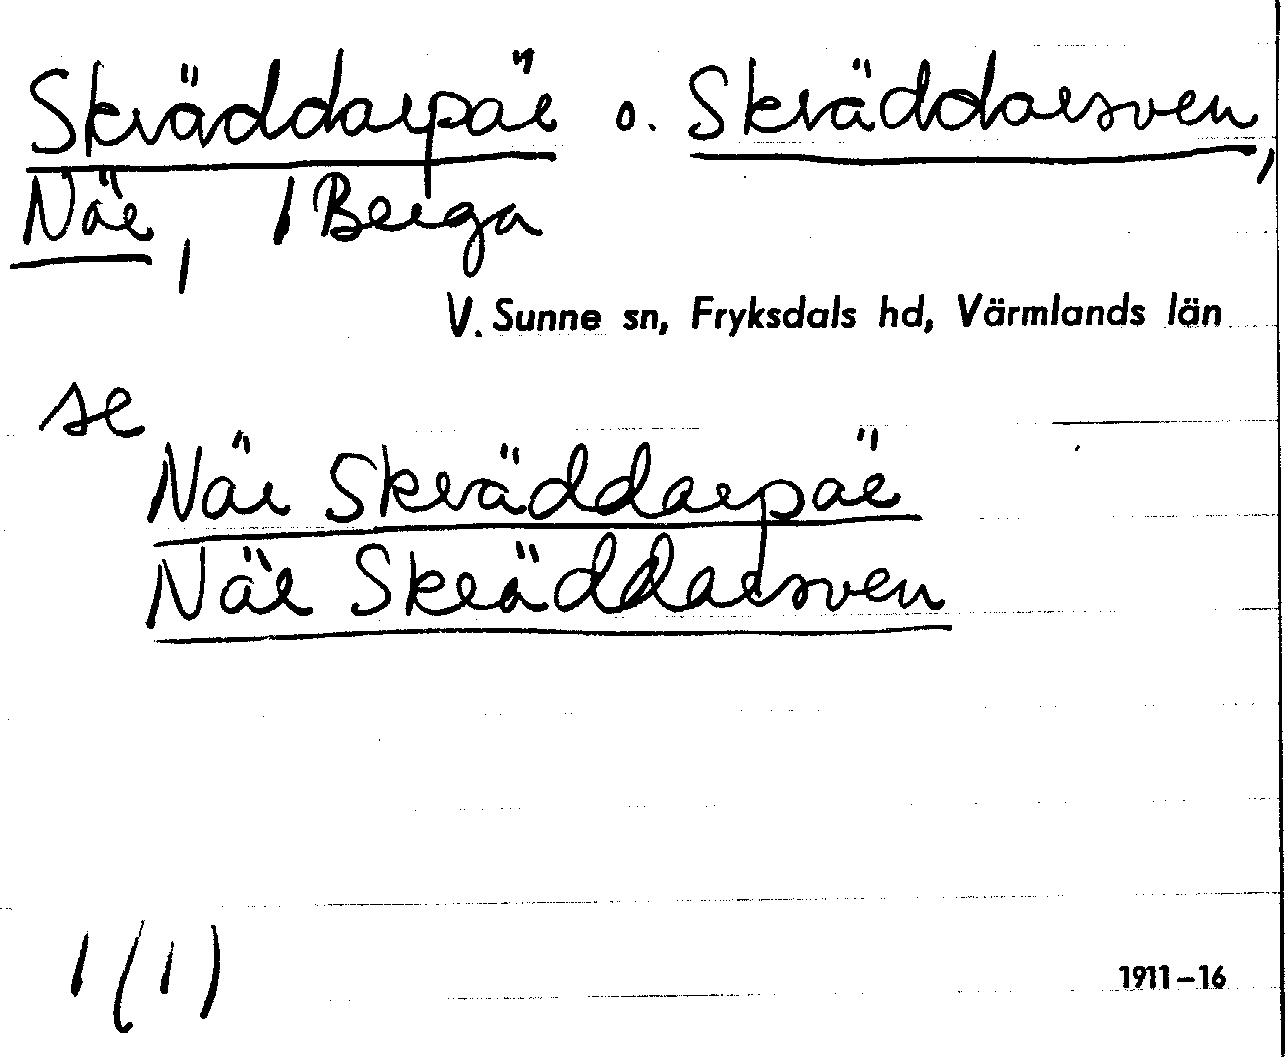 Skräddarpär o. Skräddarsven,
När, 1 Berga
V. Sunne sn, Fryksdals hd, Värmlands län
se
När Skräddarpär
När Skräddarsven
1 (1)
1911–16